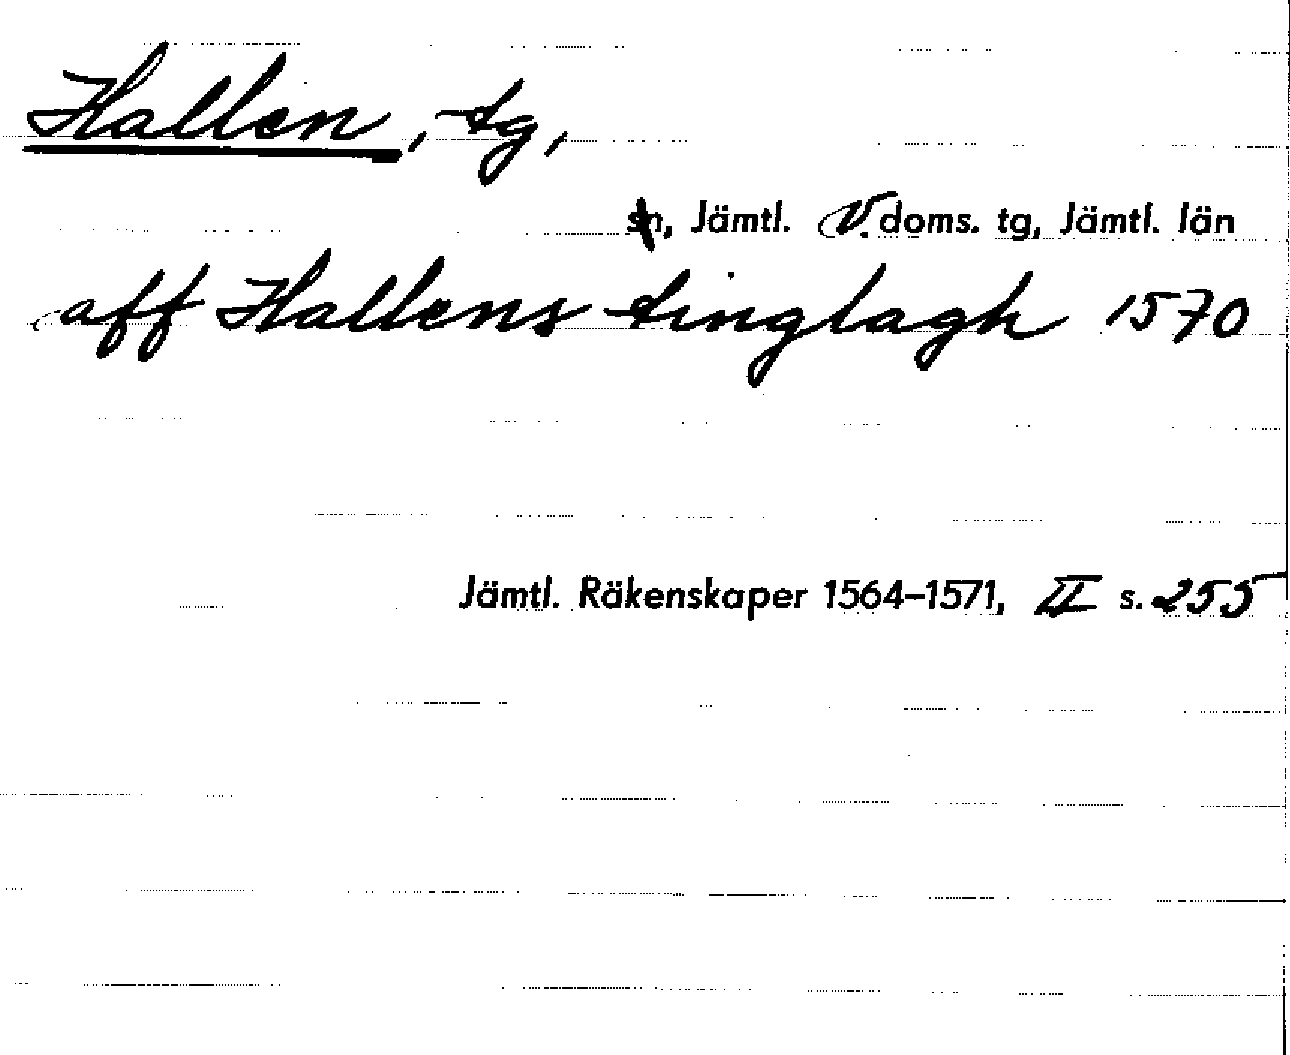 Hallen, tg,
sn, Jämtl. V. doms. tg, Jämtl. län
aff Hallens tinglagh 1570
Jämtl. Räkenskaper 1564–1571, II s. 255